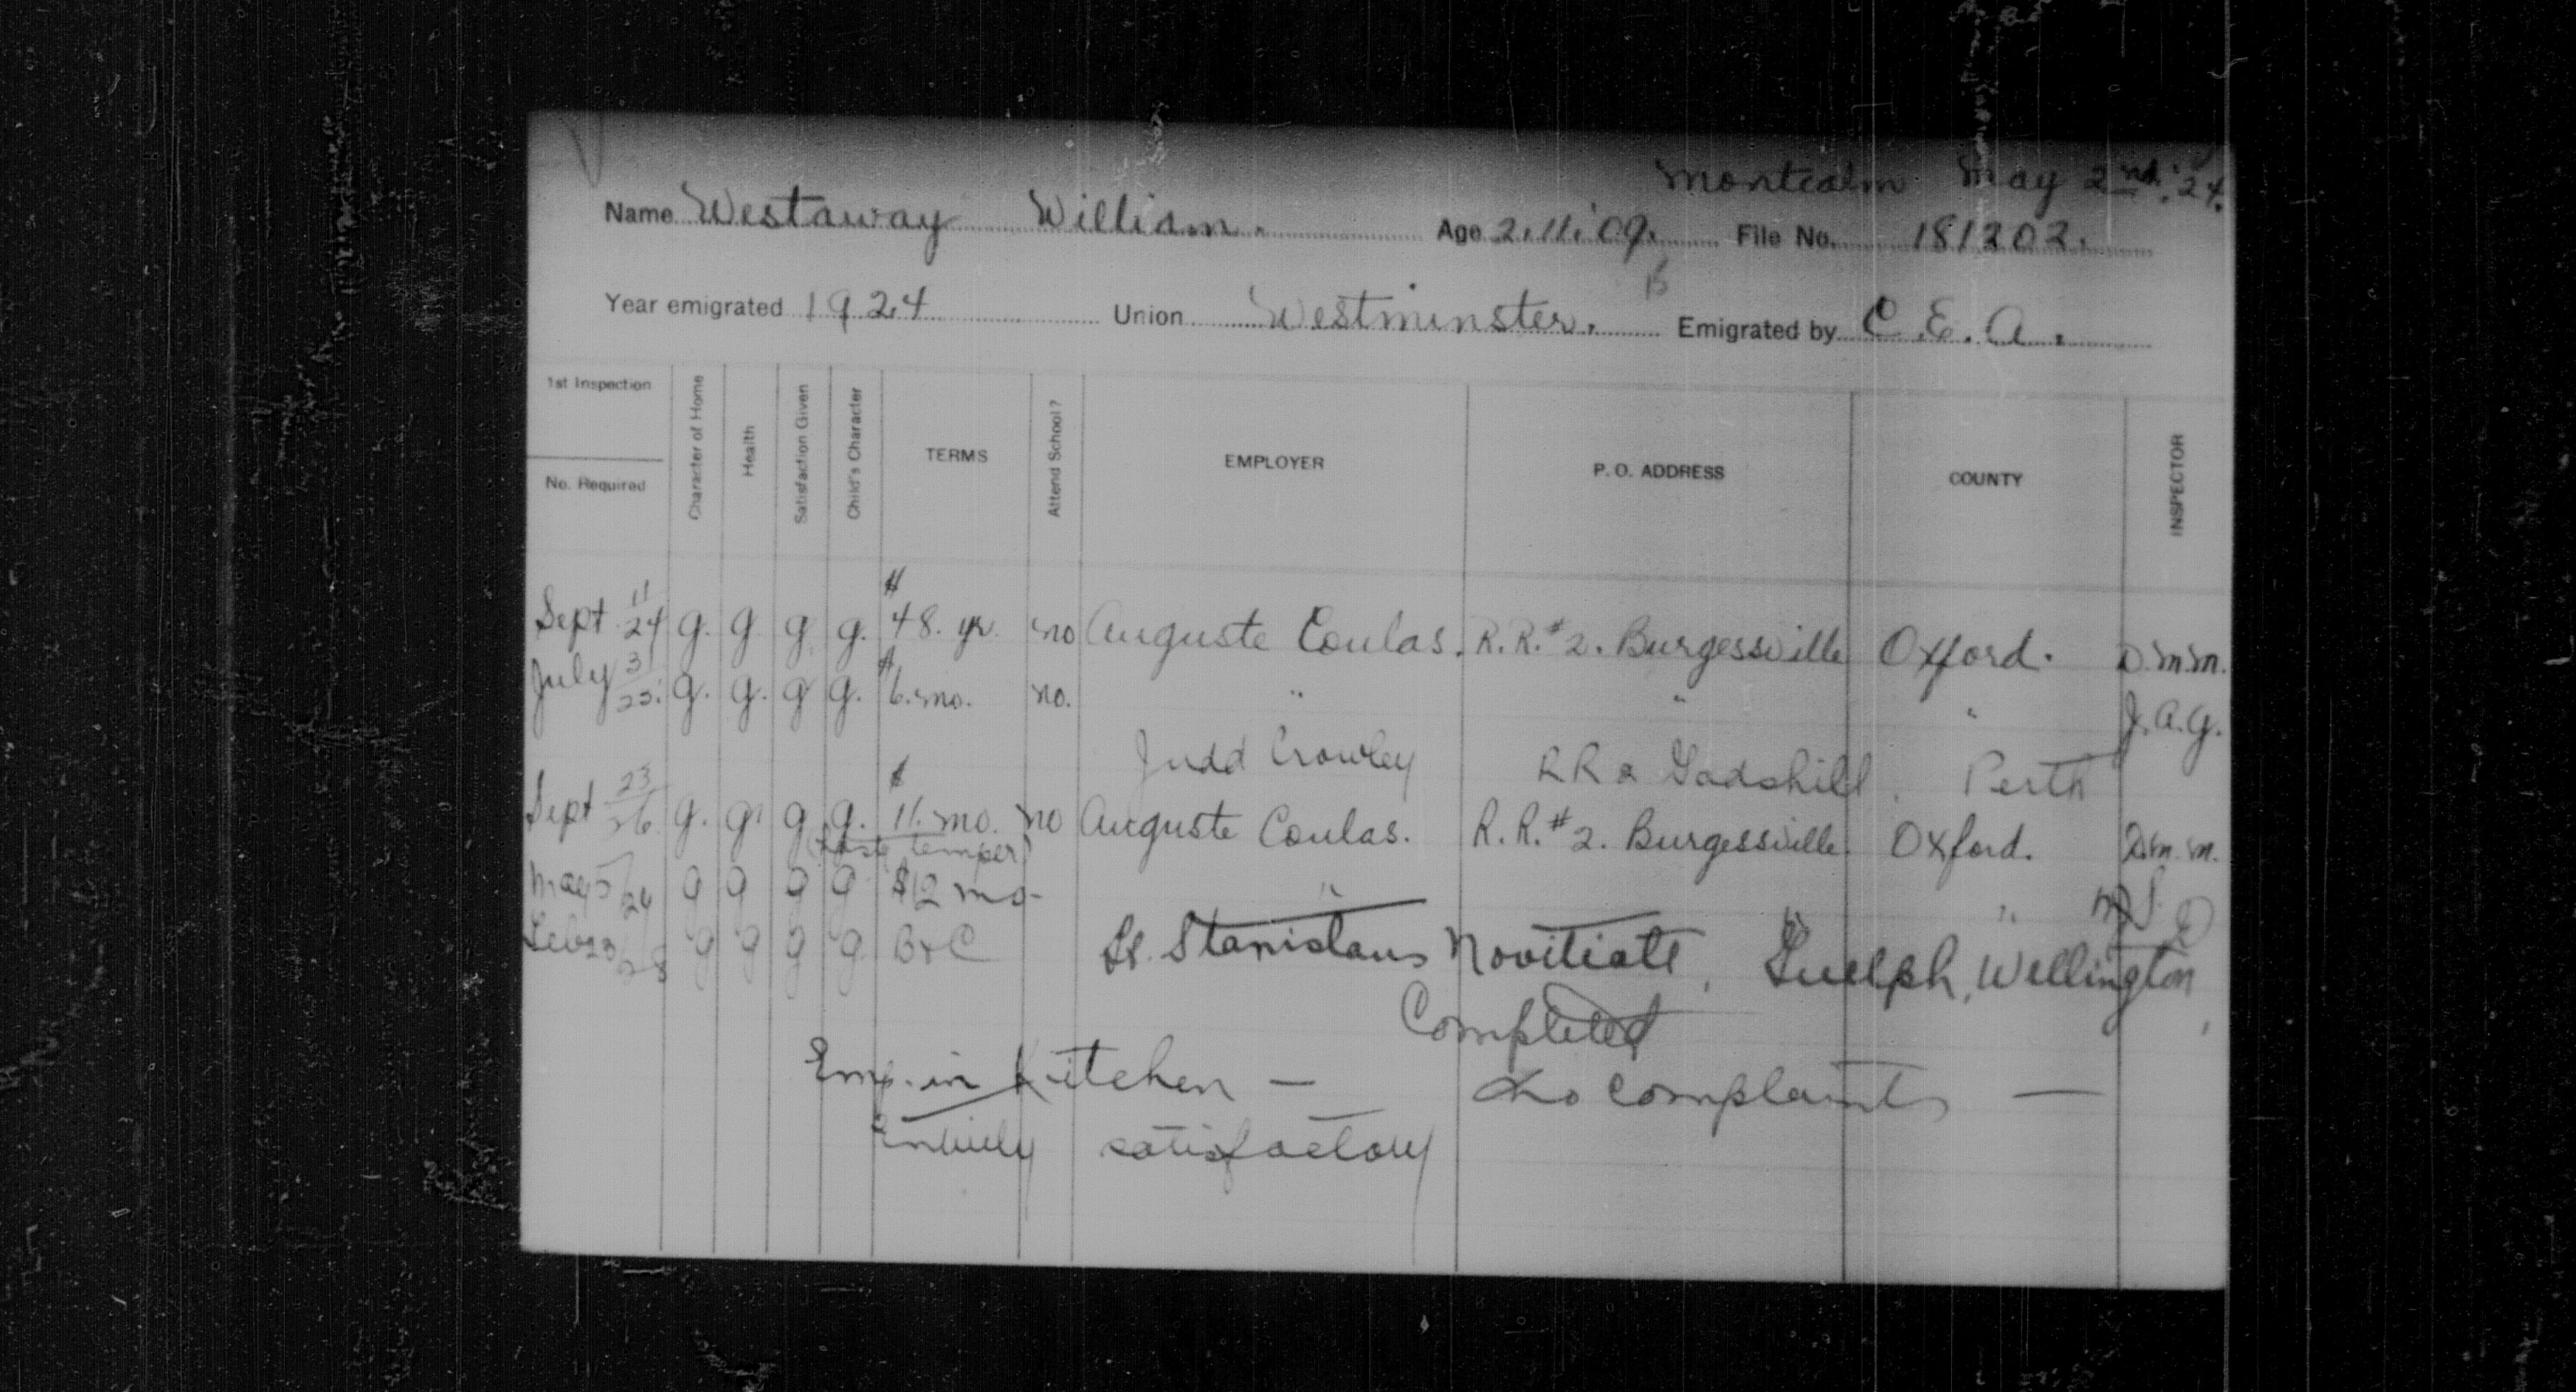 Montcalm May 2nd. '24.
Name Westaway William. Age 2.11.'09. File No. 181202.
B
Year emigrated 1924 Union Westminster. Emigrated by C.E.A.
1st Inspection
No. Required
Character of Home
Health
Satisfaction Given
Child's Character
TERMS
Attend School?
EMPLOYER
P. O. ADDRESS
COUNTY
INSPECTOR
Sept 11/24 g. g g g. $48. yr. no Auguste Coulas. R.R.#2. Burgessville Oxford. D.M.M.
July 31/25. g. g. g g. $6. mo. no. " " " J.A.G.
Judd Crowley RR 2 Gadshill. Perth
Sept 23/26. g. g. g g. $11. mo. no Auguste Coulas. R.R.#2. Burgessville. Oxford. D.M.M.
(hasty temper)
May 5/26 g g g g $12 mo- " " "
Feb 23/28 g g g g B+C St. Stanislaus Novitiate, Guelph, Wellington,
Completed
Emp. in Kitchen — No complaints —
Entirely satisfactory